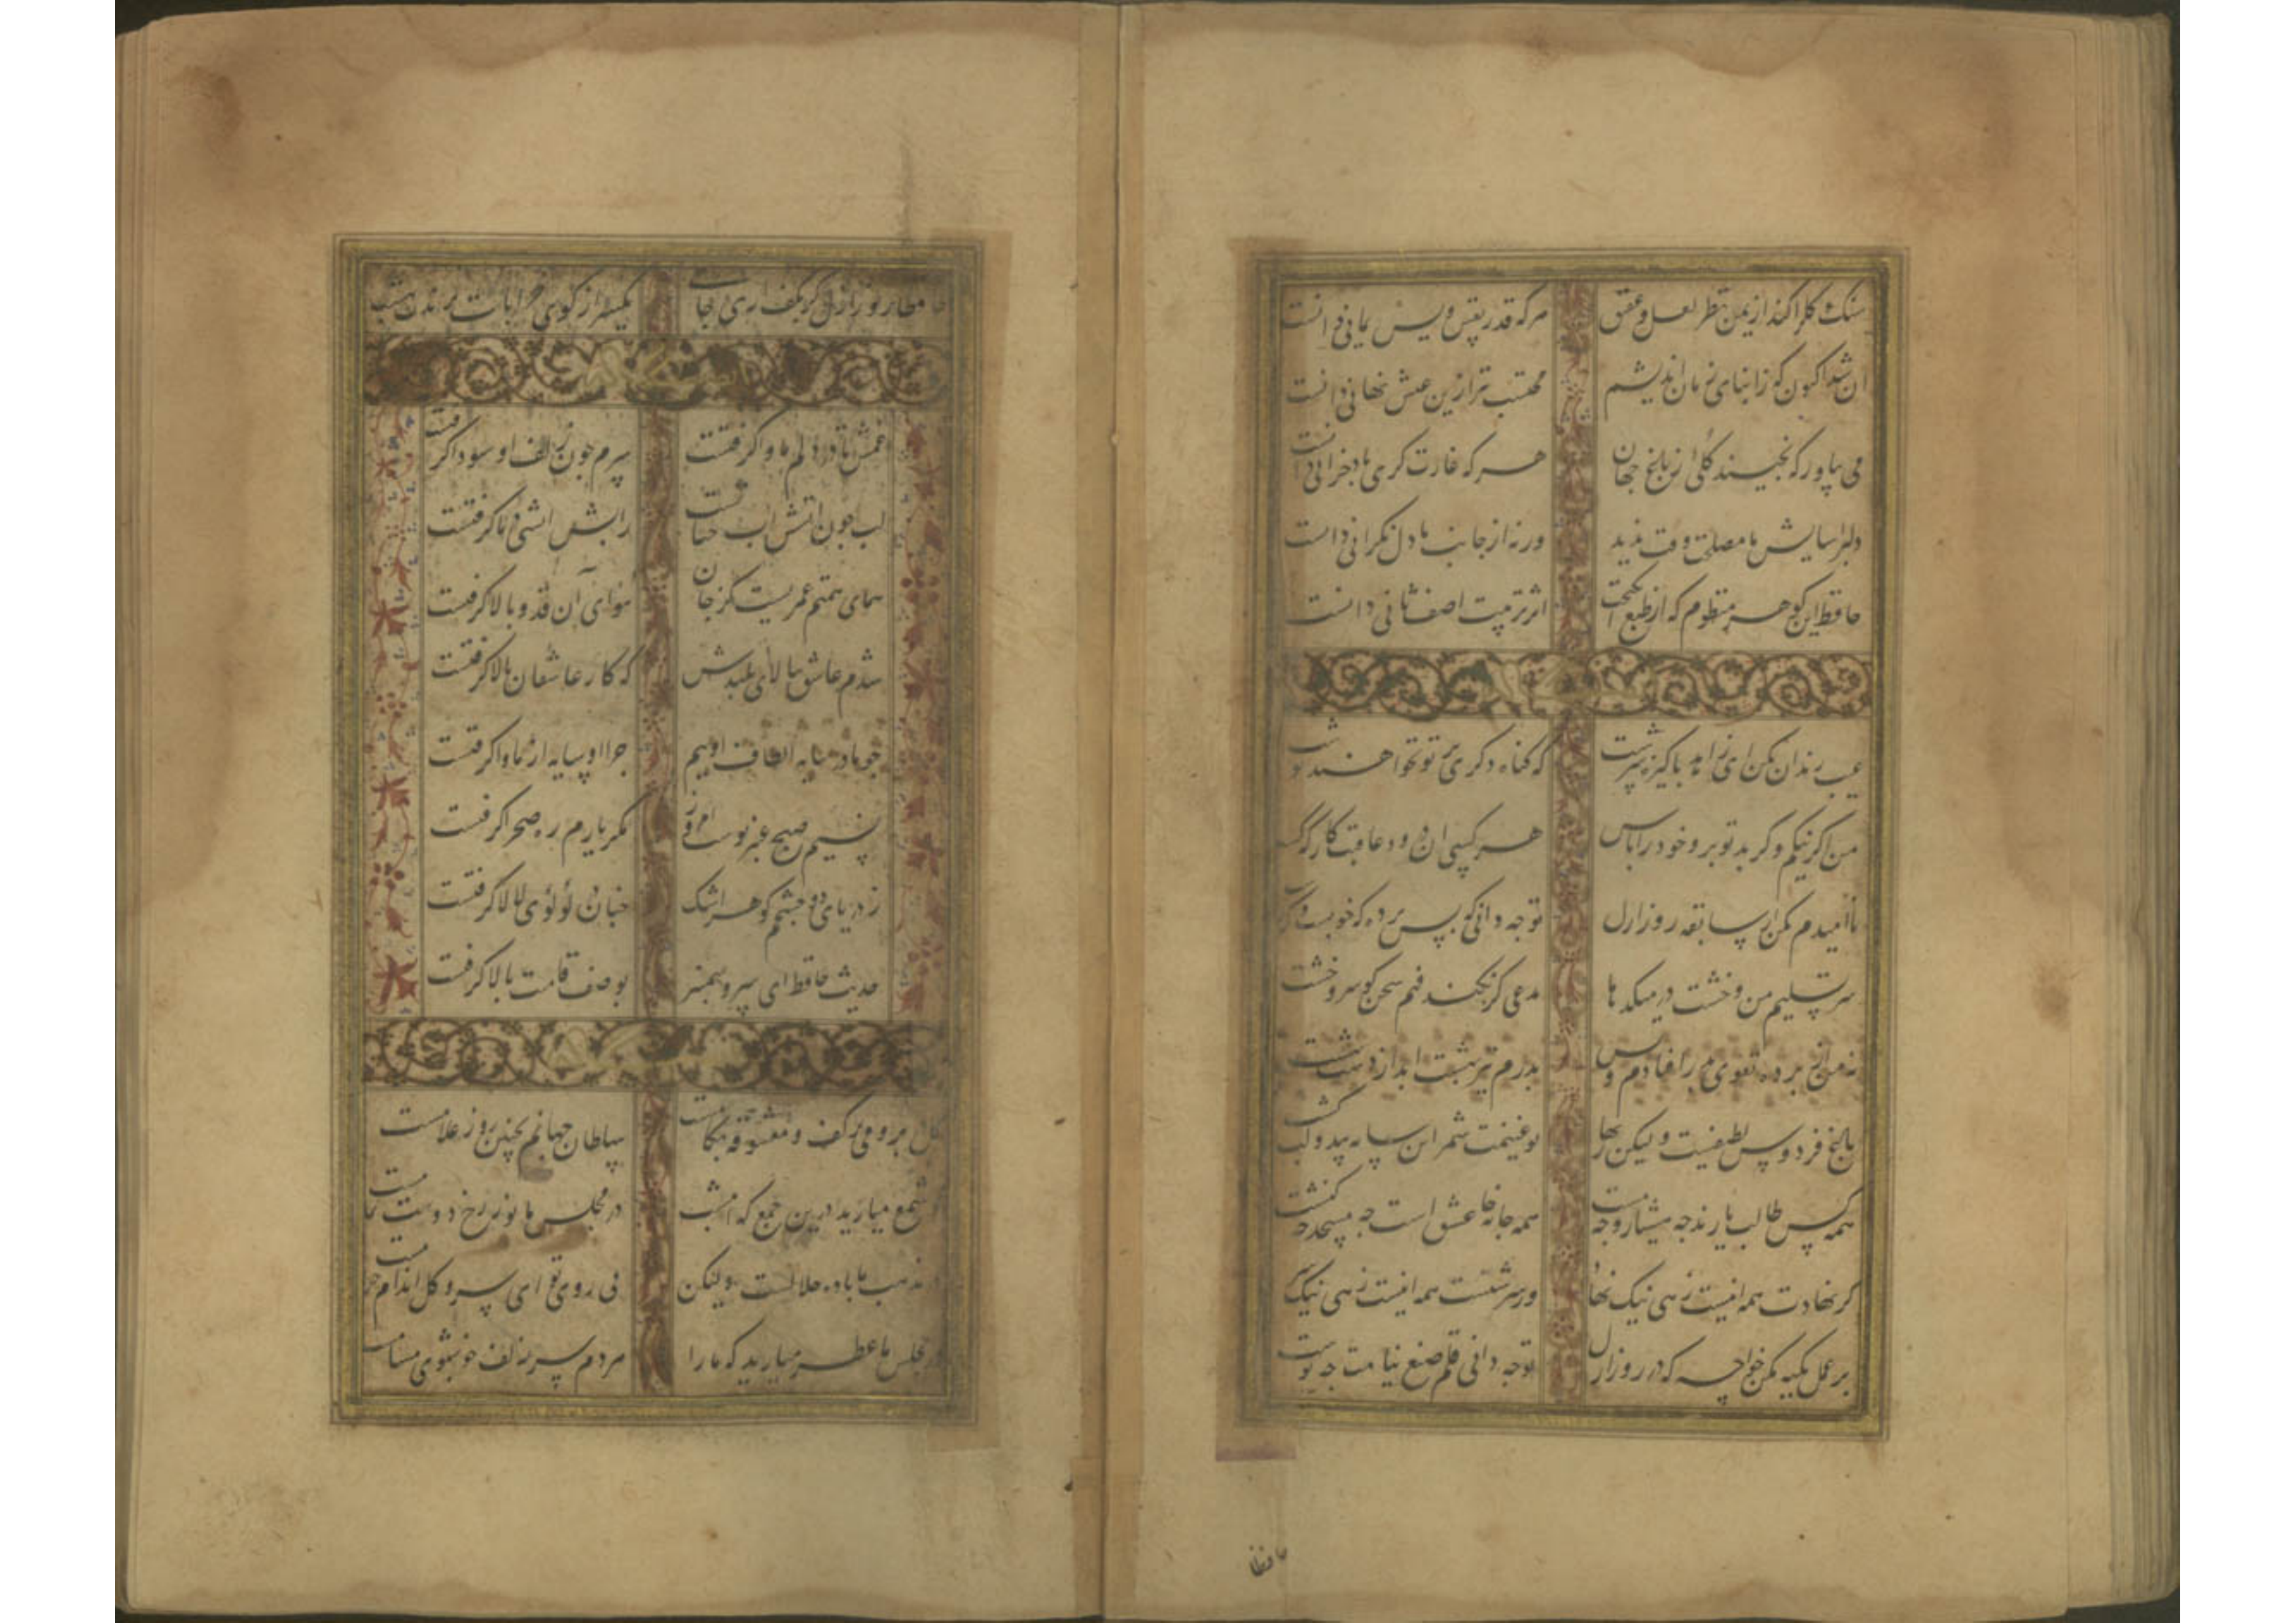 سنک و کل را کند از یمن نظر لعل و عقیق هر که قدر نفس باد یمانی دانست
آن شد اکنون که ز ابنای زمان اندیشم محتسب نیز ازین عیش نهانی دانست
می بیاور که نخیسند کلی از باغ جهان هر که غارت کری باد خزانی دانست
دلبر آسایش ما مصلحت وقت ندید ورنه از جانب ما دل نکرانی دانست
حافظ این کوهر منظوم که از طبع انکیخت اثر تربیت اصف ثانی دانست
عیب رندان مکن ای زاهد پاکیزه سرشت که کناه دکری بر تو نخواهند نوشت
من اکر نیکم و کر بد تو برو خود را باش هر کسی آن درود عاقبت کار که کشت
ناامیدم مکن از سابقه روز ازل تو چه دانی که پس پرده که خوبست و که زشت
سر تسلیم من و خشت در میکدها مدعی کر نکند فهم سخن کو سر و خشت
نه من از پرده تقوی بدر افتادم و بس پدرم نیز بهشت ابد از دست بهشت
باغ فردوس لطیفست ولیکن زنهار تو غنیمت شمر این سایه بید و لب کشت
همه کس طالب یارند چه هشیار و چه مست همه جا خانه عشق است چه مسجد چه کنشت
کر نهادت همه اینست زهی نیک نهاد ور سرشتت همه اینست زهی نیک سرشت
بر عمل تکیه مکن خواجه که در روز ازل تو چه دانی قلم صنع بنامت چه نوشت
حافظا
حافظا روز ازل کر بکف آری جامی یکسر از کوی خرابات برندت ببهشت
غمش تا در دلم ماوا کرفتست سرم چون زلف او سودا کرفتست
لب چون آتشش آب حیاتست ز آبش آتشی در ما کرفتست
همای همتم عمریست کز جان هوای آن قد و بالا کرفتست
شدم عاشق ببالای بلندش که کار عاشقان بالا کرفتست
چو ما در سایه الطاف اوییم چرا او سایه از ما وا کرفتست
نسیم صبح عنبر بوست امروز مکر یارم ره صحرا کرفتست
ز دریای دو چشمم کوهر اشک جهان لؤلؤی لالا کرفتست
حدیث حافظ ای سرو سمنبر بوصف قامت بالا کرفتست
کل در بر و می بر کف و معشوقه بکامست سلطان جهانم بچنین روز غلامست
کو شمع میارید درین جمع که امشب در مجلس ما نور رخ دوست تمامست
در مذهب ما باده حلالست ولیکن بی روی تو ای سرو کل اندام حرامست
در مجلس ما عطر میارید که ما را هر دم سر زلف خوشبوی مشامست